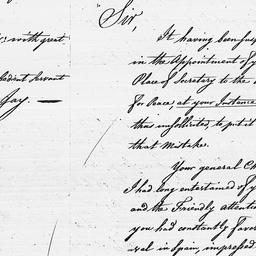 with great
Servant
Jay. —
Sir,
It having been
in the Appointment of
Place of Secretary to the
for Peace, at your Instance
thus unsollicited, to put it
that Mistake.
Your general Ch
I had long entertained of y
and the Friendly attenti
you had constantly favor
val in Spain, impressed